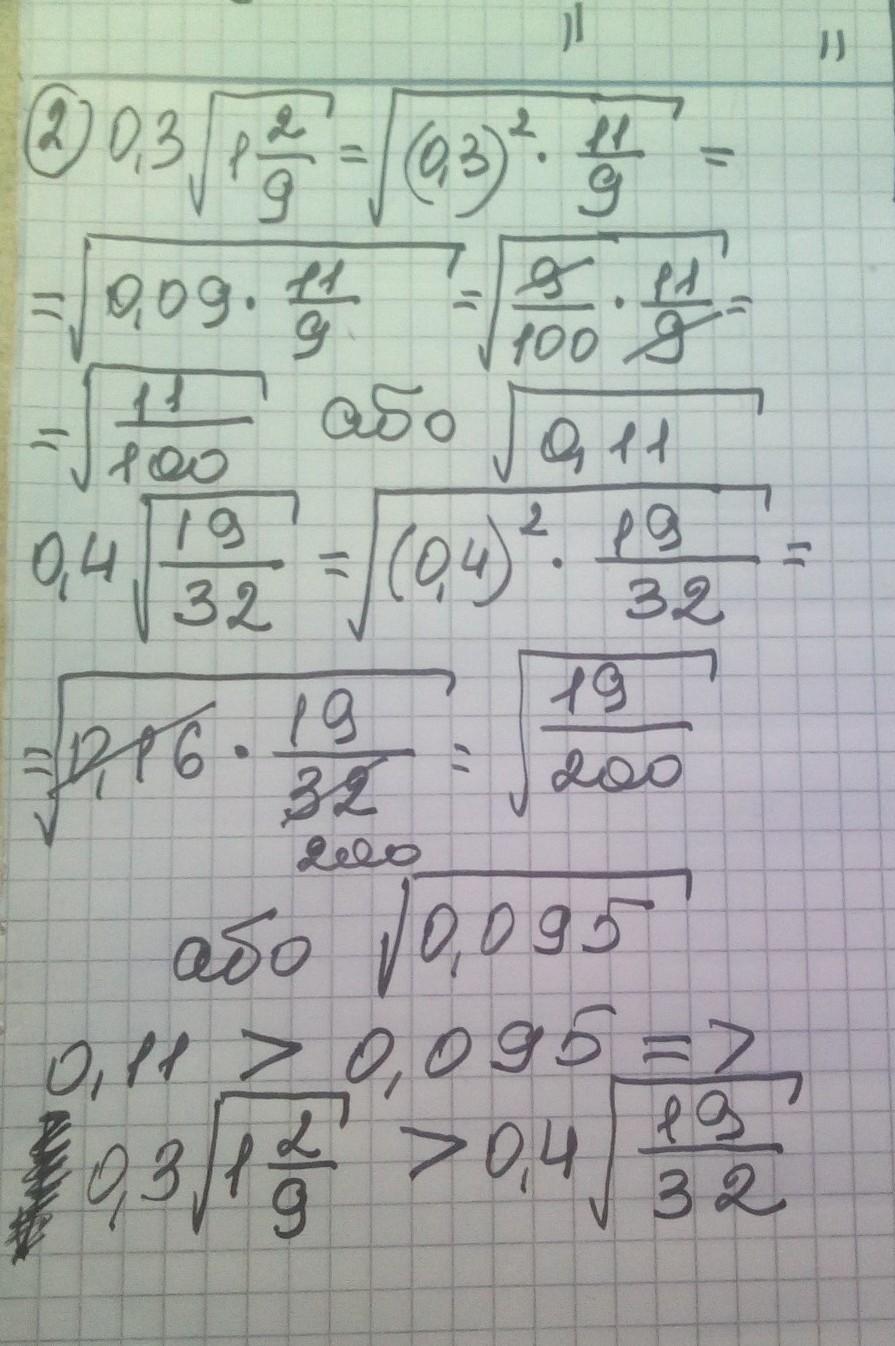 ② 0,3√(1 2/9) = √((0,3)² · 11/9) =
= √(0,09 · 11/9) = √(9/100 · 11/9) =
= √(11/100) або √(0,11)
0,4√(19/32) = √((0,4)² · 19/32) =
= √(0,16 · 19/32) = √(19/200)
200
або √(0,095)
0,11 > 0,095 =>
0,3√(1 2/9) > 0,4√(19/32)